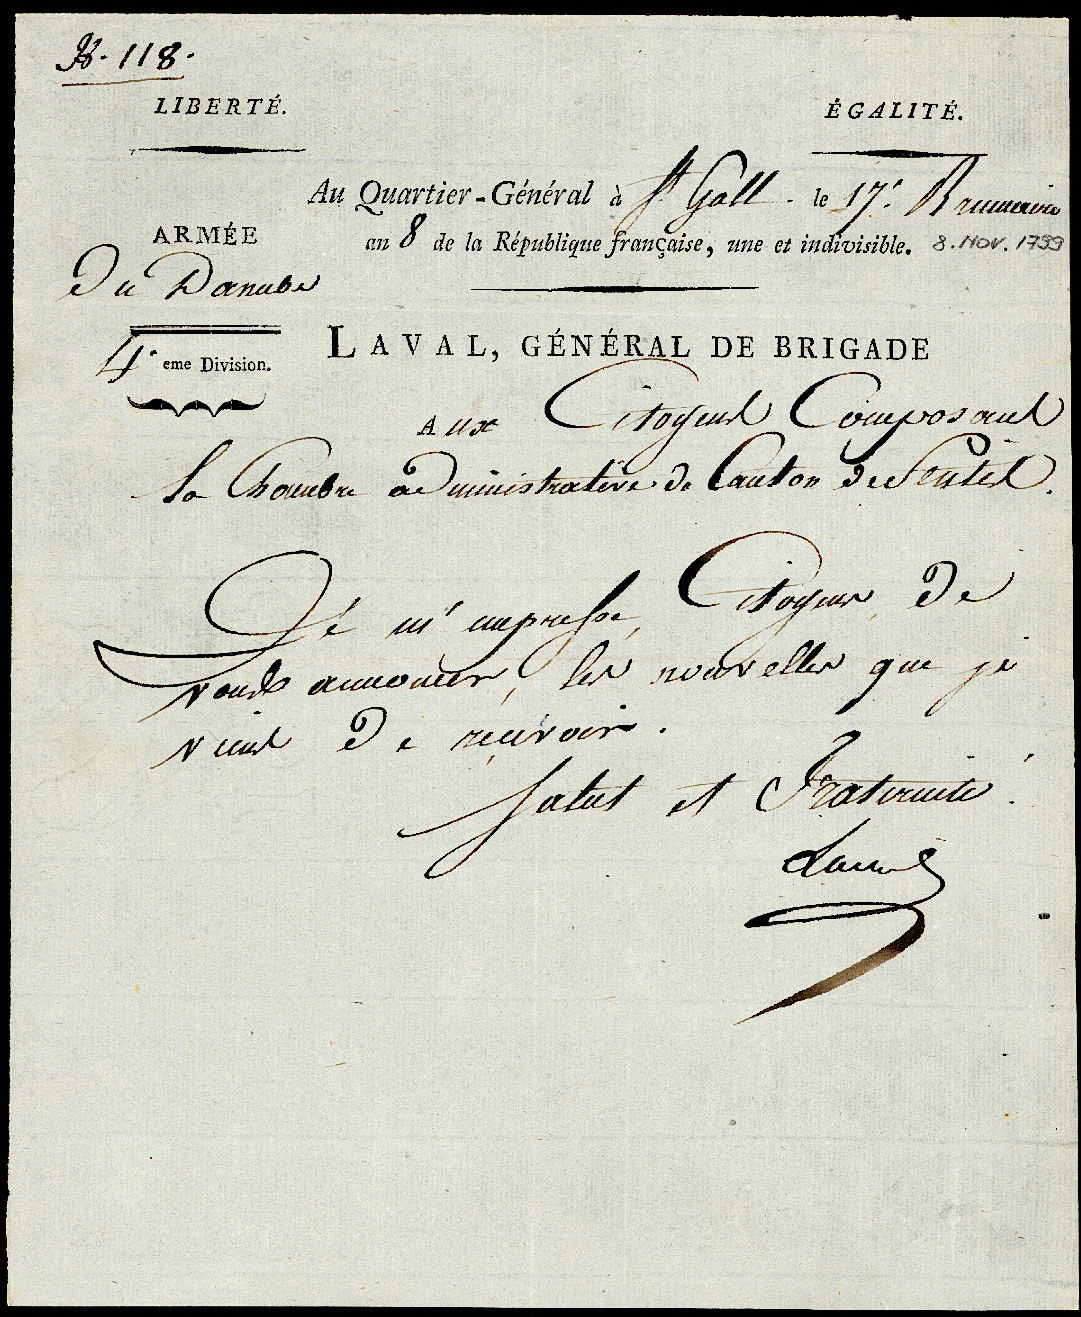 B. 118.
LIBERTÉ. ÉGALITÉ.
Au Quartier-Général à St Gall. le 17. Brumaire
an 8 de la République française, une et indivisible. 8. Nov. 1799
ARMÉE
Du Danube
4. eme Division.
LAVAL, GÉNÉRAL DE BRIGADE
Aux Citoyens Composant
la Chambre administrative de Canton de Sentis.
Je m'empresse, Citoyens, de
vous annoncer, les nouvelles que je
viens de recevoir.
Salut et Fraternité.
Laval